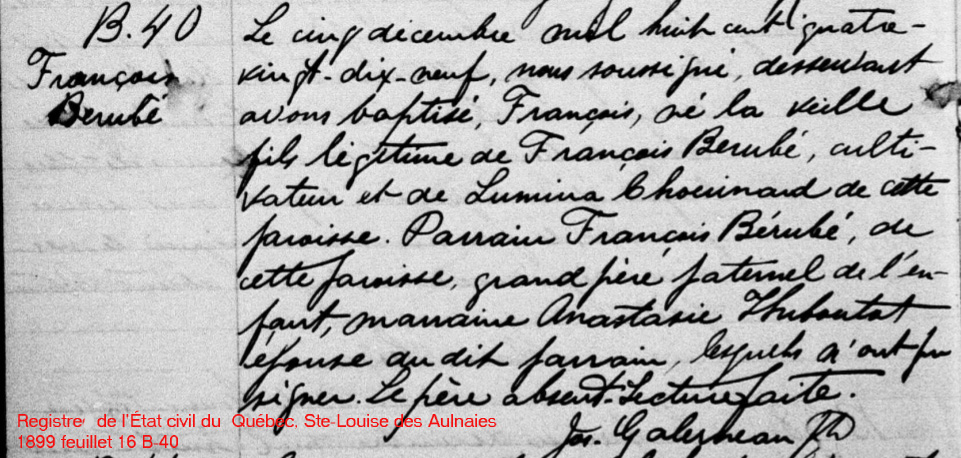 B.40
François
Berubé
Le cinq décembre mil huit cent quatre-
vingt-dix-neuf, nous soussigné, desservant
avons baptisé, François, né la veille
fils légitime de François Berubé, culti-
vateur et de Lumina Chouinard de cette
paroisse. Parrain François Bérubé, de
cette paroisse, grand père paternel de l'en-
fant, marraine Anastasie Thiboutot
épouse du dit parrain, lesquels n'ont pu
signer. Le père absent. Lecture faite.
Jos. Galerneau Ptr
Registre de l'État civil du Québec, Ste-Louise des Aulnaies
1899 feuillet 16 B-40